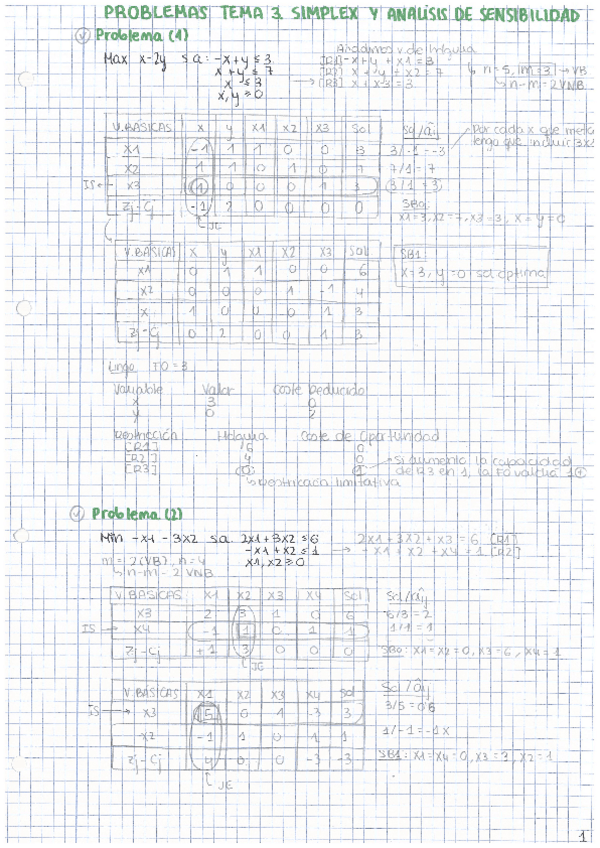 PROBLEMAS TEMA 3. SIMPLEX Y ANALISIS DE SENSIBILIDAD
Problema (1)
Max x-2y s a: -x+y ≤ 3
x+y ≤ 7
x ≤ 3
x, y ≥ 0
Añadimos v de holgura
[R1] -x+y + x1 = 3
[R2] x + y + x2 = 7
→ [R3] x + x3 = 3
n=5, m=3 → VB
n-m = 2 VNB
V.BASICAS x y x1 x2 x3 Sol
x1 -1 1 1 0 0 3
x2 1 1 0 1 0 7
IS← x3 1 0 0 0 1 3
zj-cj -1 2 0 0 0 0
JE
Sol/âij
3/-1 = -3
7/1 = 7
3/1 = 3
Por cada x que meta
tengo que incluir 3x
SB0:
x1=3, x2=7, x3=3, x=y=0
V.BASICAS x y x1 x2 x3 Sol
x1 0 1 1 0 0 6
x2 0 0 0 1 -1 4
x 1 0 0 0 1 3
zj-cj 0 2 0 0 1 3
SB1:
x=3, y=0 sol optima
Lingo FO = 3
Variable Valor Coste Reducido
x 3 0
y 0 2
Restricción Holgura Coste de Oportunidad
[R1] 6 0
[R2] 4 0
[R3] 0 1
Si aumento la capacidad
de R3 en 1, la FO valdría 1 +
Restricción limitativa
Problema (2)
Min -x1 - 3x2 s.a. 2x1+3x2 ≤ 6
-x1+x2 ≤ 1
x1, x2 ≥ 0
2x1+3x2+x3 = 6 [R1]
→ -x1+x2+x4 = 1 [R2]
m = 2 (VB), n=4
n-m = 2 VNB
V.BASICAS x1 x2 x3 x4 Sol
x3 2 3 1 0 6
IS← x4 -1 1 0 1 1
zj-cj +1 3 0 0 0
JE
Sol/âij
6/3 = 2
1/1 = 1
SB0: x1=x2=0, x3=6, x4=1
V.BASICAS x1 x2 x3 x4 Sol
IS← x3 5 0 1 -3 3
x2 -1 1 0 1 1
zj-cj 4 0 0 -3 -3
JE
Sol/âij
3/5 = 0'6
1/-1 = -1 x
SB1: x1=x4=0, x3=3, x2=1
1